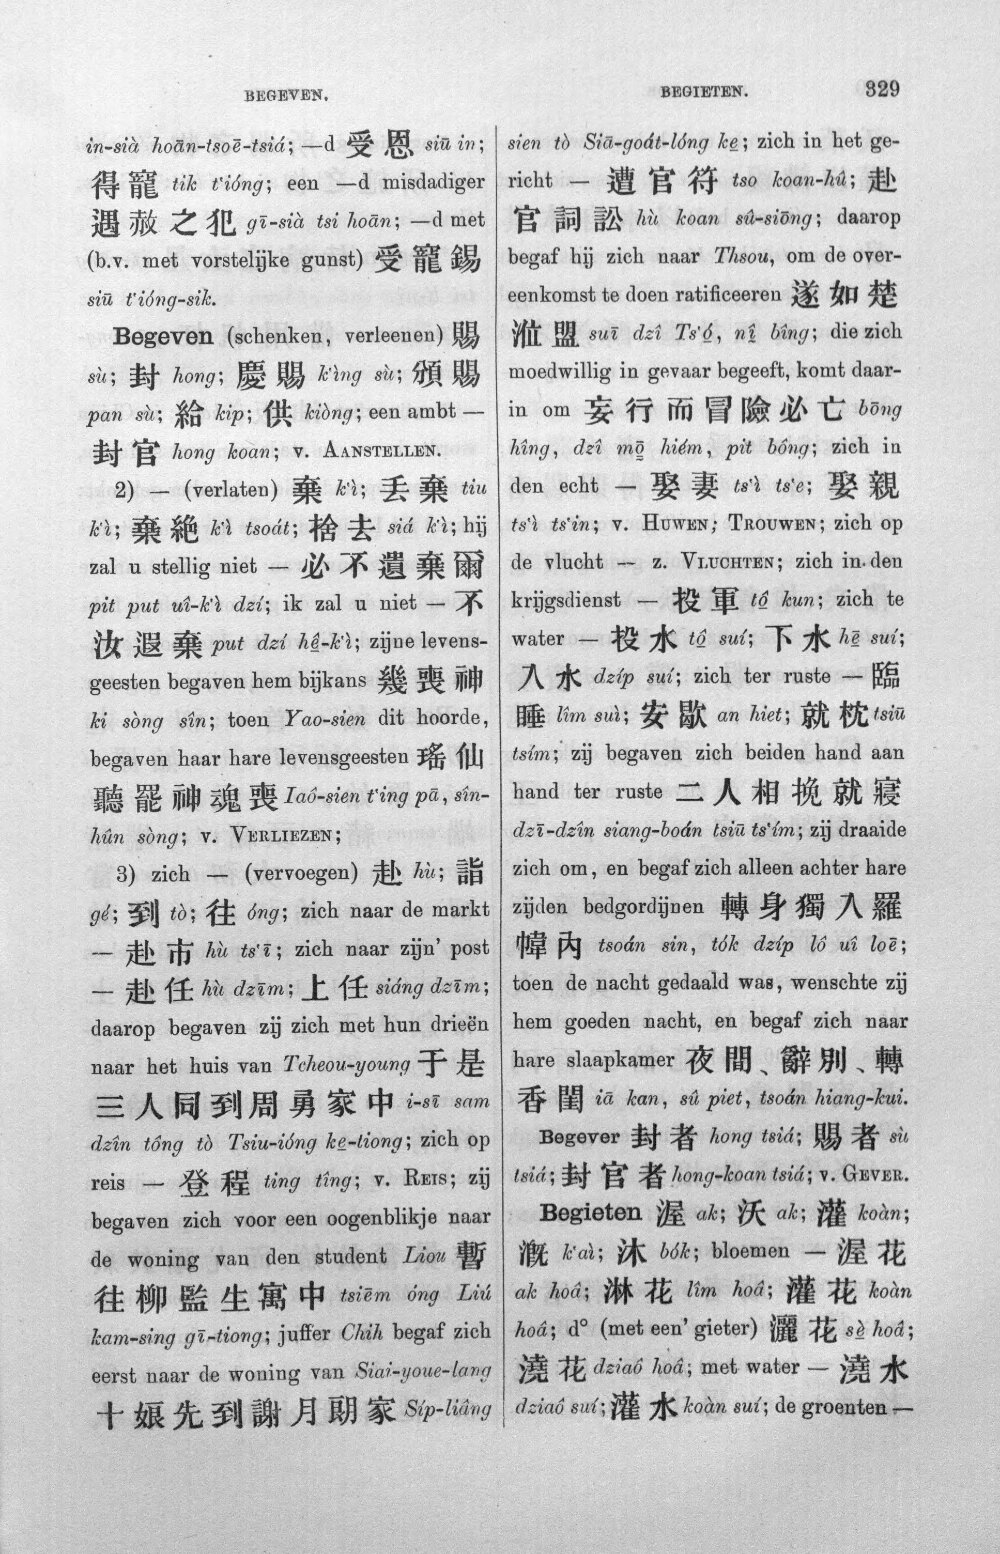 BEGEVEN.
BEGIETEN.
329
in-sià hoān-tsoē-tsiá; —d 受恩 siū in;
得寵 tik t‘ióng; een —d misdadiger
遇赦之犯 gī-sià tsi hoān; —d met
(b.v. met vorstelijke gunst) 受寵錫
siū t‘ióng-sik.
Begeven (schenken, verleenen) 賜
sù; 封 hong; 慶賜 k‘ìng sù; 頒賜
pan sù; 給 kip; 供 kiòng; een ambt —
封官 hong koan; v. AANSTELLEN.
2) — (verlaten) 棄 k‘ì; 丢棄 tiu
k‘ì; 棄絕 k‘ì tsoát; 捨去 siá k‘ì; hij
zal u stellig niet — 必不遺棄爾
pit put uî-k‘ì dzí; ik zal u niet — 不
汝遐棄 put dzí hê̱-k‘ì; zijne levens-
geesten begaven hem bijkans 幾喪神
ki sòng sîn; toen Yao-sien dit hoorde,
begaven haar hare levensgeesten 瑤仙
聽罷神魂喪 Iaô-sien t‘ing pā, sîn-
hûn sòng; v. VERLIEZEN;
3) zich — (vervoegen) 赴 hù; 詣
gé; 到 tò; 往 óng; zich naar de markt
— 赴市 hù ts‘ī; zich naar zijn’ post
— 赴任 hù dzīm; 上任 siáng dzīm;
daarop begaven zij zich met hun drieën
naar het huis van Tcheou-young 于是
三人同到周勇家中 i-sī sam
dzîn tông tò Tsiu-ióng ke̱-tiong; zich op
reis — 登程 ting tîng; v. REIS; zij
begaven zich voor een oogenblikje naar
de woning van den student Liou 暫
往柳監生寓中 tsiēm óng Liú
kam-sing gī-tiong; juffer Chih begaf zich
eerst naar de woning van Siai-youe-lang
十娘先到謝月朗家 Síp-liâng
sien tò Siā-goát-lóng ke̱; zich in het ge-
richt — 遭官符 tso koan-hû; 赴
官詞訟 hù koan sû-siōng; daarop
begaf hij zich naar Thsou, om de over-
eenkomst te doen ratificeeren 遂如楚
涖盟 suī dzî Ts‘ó̱, nî̱ bîng; die zich
moedwillig in gevaar begeeft, komt daar-
in om 妄行而冒險必亡 bōng
hîng, dzî mō̱ hiém, pit bông; zich in
den echt — 娶妻 ts‘ì ts‘e; 娶親
ts‘ì ts‘in; v. HUWEN; TROUWEN; zich op
de vlucht — z. VLUCHTEN; zich in den
krijgsdienst — 投軍 tô̱ kun; zich te
water — 投水 tô̱ suí; 下水 hē̱ suí;
入水 dzíp suí; zich ter ruste — 臨
睡 lîm suì; 安歇 an hiet; 就枕 tsiū
tsím; zij begaven zich beiden hand aan
hand ter ruste 二人相挽就寢
dzī-dzîn siang-boán tsiū ts‘ím; zij draaide
zich om, en begaf zich alleen achter hare
zijden bedgordijnen 轉身獨入羅
幃內 tsoán sin, tók dzíp lô uî loē;
toen de nacht gedaald was, wenschte zij
hem goeden nacht, en begaf zich naar
hare slaapkamer 夜間、辭別、轉
香閨 iā kan, sû piet, tsoán hiang-kui.
Begever 封者 hong tsiá; 賜者 sù
tsiá; 封官者 hong-koan tsiá; v. GEVER.
Begieten 渥 ak; 沃 ak; 灌 koàn;
溉 k‘aì; 沐 bók; bloemen — 渥花
ak hoâ; 淋花 lîm hoâ; 灌花 koàn
hoâ; d° (met een’ gieter) 灑花 sè̱ hoâ;
澆花 dziaô hoâ; met water — 澆水
dziaô suí; 灌水 koàn suí; de groenten —